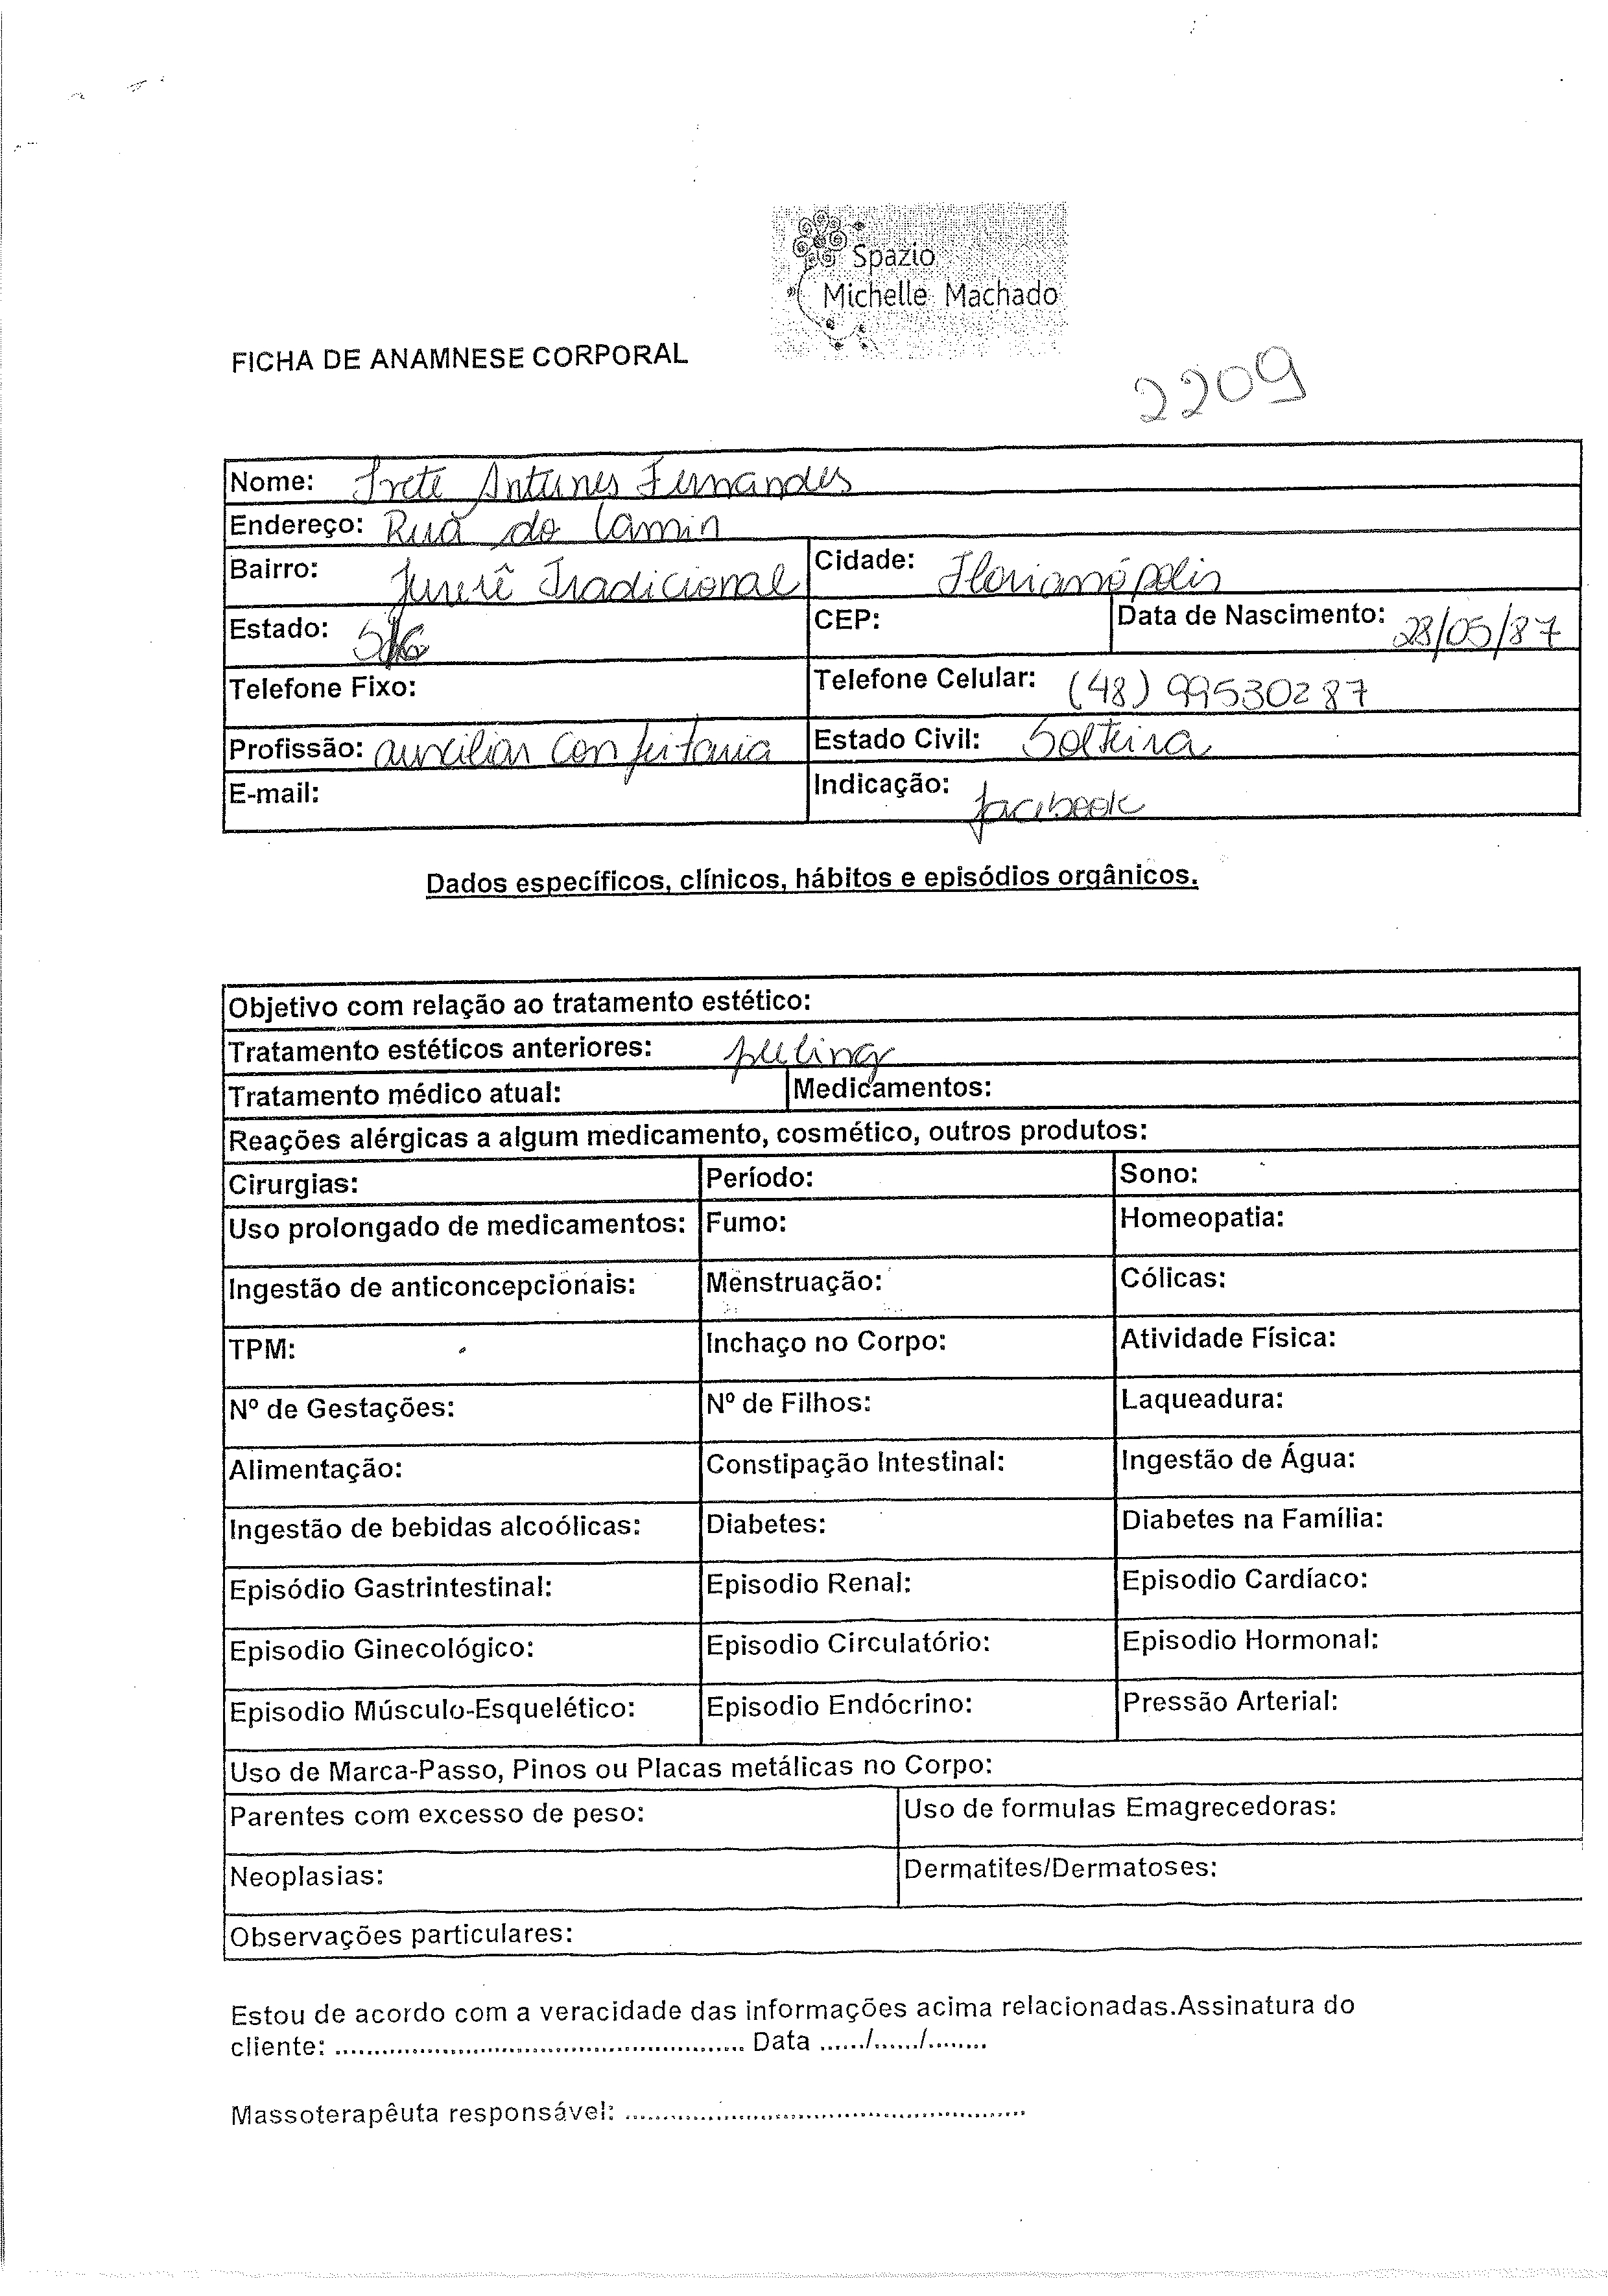 Spazio
Michelle Machado
FICHA DE ANAMNESE CORPORAL
2209
Nome: Irete Antunes Fernandes
Endereço: Rua do Lamin
Bairro: Jurerê Tradicional Cidade: Florianópolis
Estado: CEP: Data de Nascimento: 28/05/87
Telefone Fixo: Telefone Celular: (48) 99530287
Profissão: auxiliar confeitaria Estado Civil: Solteira
E-mail: Indicação: facebook
Dados específicos, clínicos, hábitos e episódios orgânicos.
Objetivo com relação ao tratamento estético:
Tratamento estéticos anteriores: peeling
Tratamento médico atual: Medicamentos:
Reações alérgicas a algum medicamento, cosmético, outros produtos:
Cirurgias: Período: Sono:
Uso prolongado de medicamentos: Fumo: Homeopatia:
Ingestão de anticoncepcionais: Menstruação: Cólicas:
TPM: Inchaço no Corpo: Atividade Física:
Nº de Gestações: Nº de Filhos: Laqueadura:
Alimentação: Constipação Intestinal: Ingestão de Água:
Ingestão de bebidas alcoólicas: Diabetes: Diabetes na Família:
Episódio Gastrintestinal: Episodio Renal: Episodio Cardíaco:
Episodio Ginecológico: Episodio Circulatório: Episodio Hormonal:
Episodio Músculo-Esquelético: Episodio Endócrino: Pressão Arterial:
Uso de Marca-Passo, Pinos ou Placas metálicas no Corpo:
Parentes com excesso de peso: Uso de formulas Emagrecedoras:
Neoplasias: Dermatites/Dermatoses:
Observações particulares:
Estou de acordo com a veracidade das informações acima relacionadas.Assinatura do
cliente: .................................................. Data ....../....../........
Massoterapêuta responsável: ..................................................